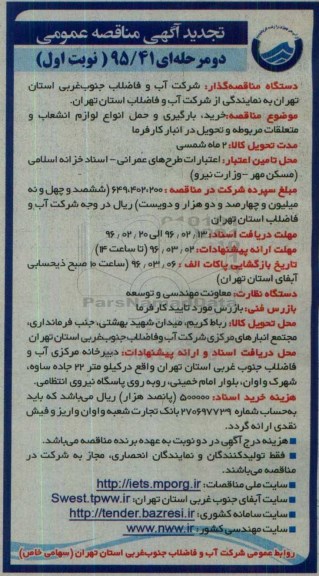 تجدید آگهی مناقصه عمومی
دو مرحله‌ای ۹۵/۴۱ (نوبت اول)
دستگاه مناقصه‌گذار: شرکت آب و فاضلاب جنوب‌غربی استان
تهران به نمایندگی از شرکت آب و فاضلاب استان تهران.
موضوع مناقصه: خرید، بارگیری و حمل انواع لوازم انشعاب و
متعلقات مربوطه و تحویل در انبار کارفرما
مدت تحویل کالا: ۲ ماه شمسی
محل تامین اعتبار: اعتبارات طرح‌های عمرانی - اسناد خزانه اسلامی
(مسکن مهر - وزارت نیرو)
مبلغ سپرده شرکت در مناقصه: ۶۴۹،۴۰۲،۲۰۰ (ششصد و چهل و نه
میلیون و چهارصد و دو هزار و دویست) ریال در وجه شرکت آب و
فاضلاب استان تهران
مهلت دریافت اسناد: ۹۶/۰۲/۱۳ الی ۹۶/۰۲/۲۰
مهلت ارائه پیشنهادات: ۹۶/۰۳/۰۲ (تا ساعت ۱۴)
تاریخ بازگشایی پاکات الف: ۹۶/۰۳/۰۶ (ساعت ۱۰ صبح ذیحسابی
آبفای استان تهران)
دستگاه نظارت: معاونت مهندسی و توسعه
بازرس فنی: بازرس مورد تایید کارفرما
محل تحویل کالا: رباط کریم، میدان شهید بهشتی، جنب فرمانداری،
مجتمع انبارهای مرکزی شرکت آب و فاضلاب جنوب‌غربی استان تهران
محل دریافت اسناد و ارائه پیشنهادات: دبیرخانه مرکزی آب و
فاضلاب جنوب غربی استان تهران واقع در کیلو متر ۲۲ جاده ساوه،
شهرک واوان، بلوار امام خمینی، روبه روی پاسگاه نیروی انتظامی.
هزینه خرید اسناد: ۵۰۰۰۰۰ (پانصد هزار) ریال می‌باشد که باید
به‌حساب شماره ۲۷۰۶۹۷۷۳۹ بانک تجارت شعبه واوان واریز و فیش
نقدی ارائه گردد.
هزینه درج آگهی در دو نوبت به عهده برنده مناقصه می‌باشد.
فقط تولیدکنندگان و نمایندگان انحصاری، مجاز به شرکت در
مناقصه می‌باشند.
سایت ملی مناقصات: http://iets.mporg.ir
سایت آبفای جنوب غربی استان تهران: Swest.tpww.ir
سایت سامانه کشوری: http://tender.bazresi.ir
سایت مهندسی کشور: www.nww.ir
روابط عمومی شرکت آب و فاضلاب جنوب‌غربی استان تهران (سهامی خاص)